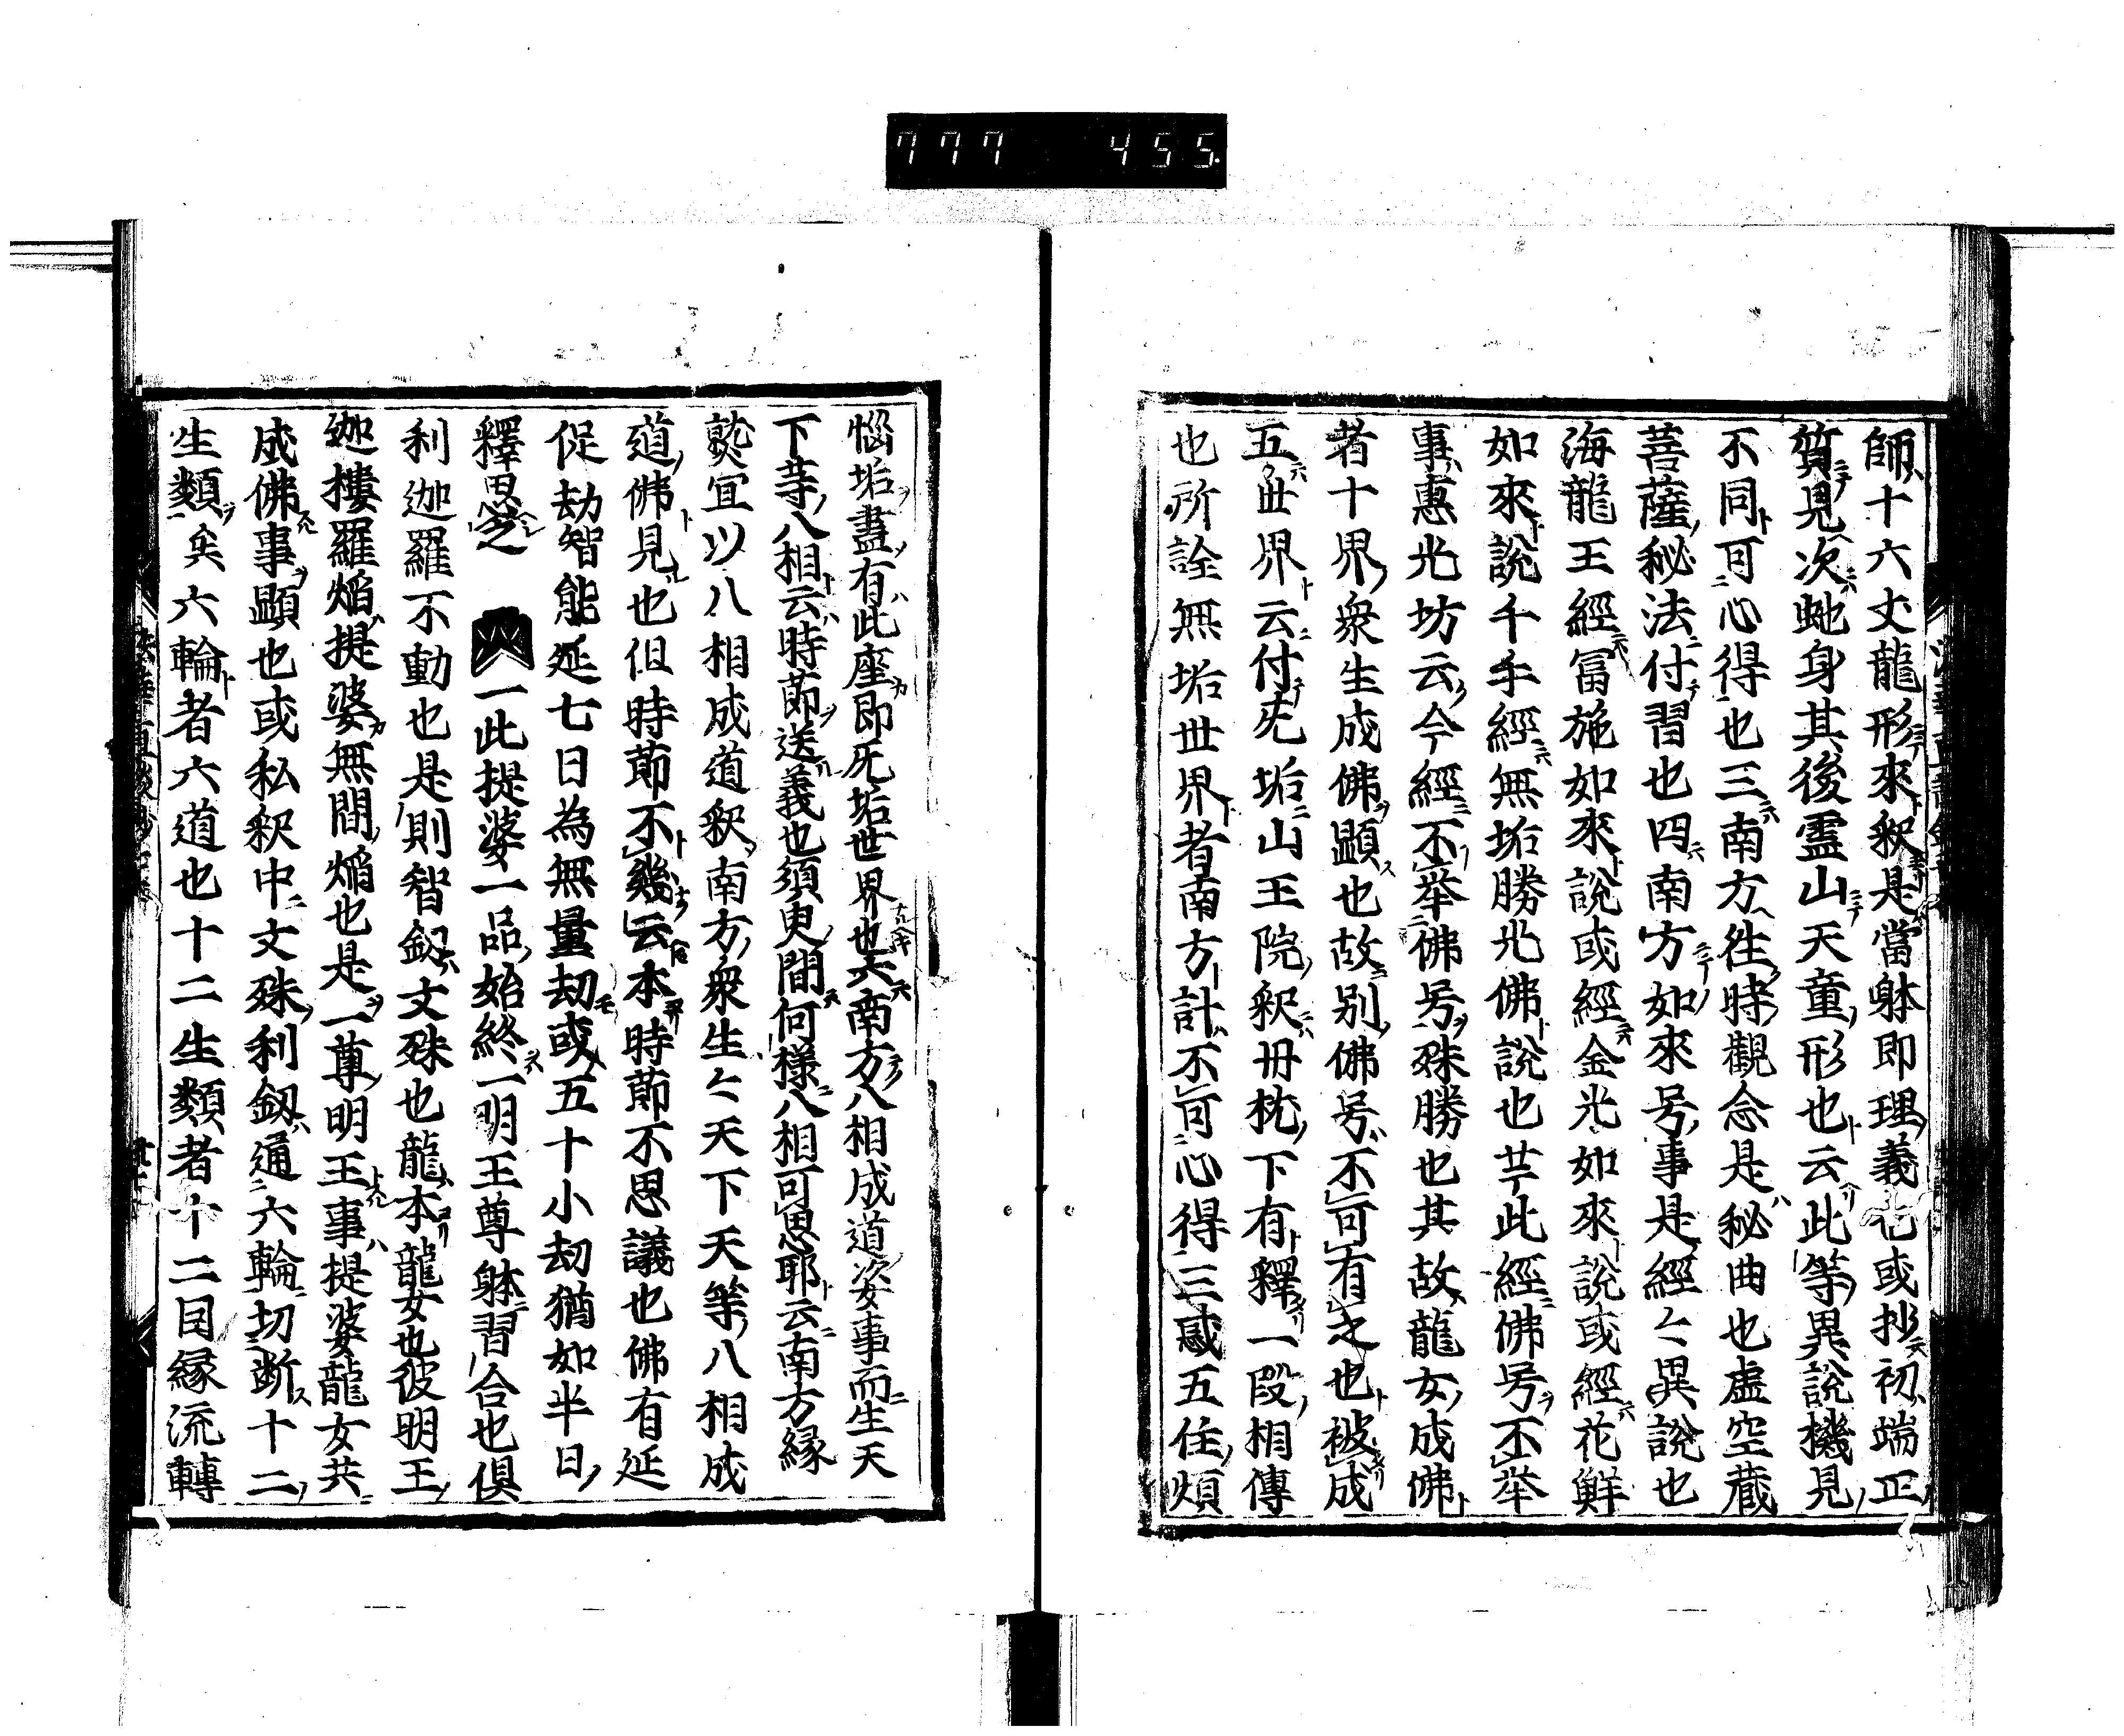 777 455
師十六丈龍形來釈是當躰即理義也或抄初端正
質見次虵身其後霊山天童形也云此等異說機見
不同可心得也三南方徃時觀念是秘曲也虚空蔵
菩薩秘法付習也四南方如來号事是經〻異說也
海龍王經冨施如來說或經金光如來說或經花鮮
如來說千手經無垢勝光佛說也サテ此經佛号不举
事惠光坊云今經不举佛号殊勝也其故龍女成佛
者十界衆生成佛顕也故別佛号不可有之也被成
五世界云付无垢山王院釈丹枕下有釋一段相傳
也所詮無垢世界者南方計不可心得三惑五住煩
惱垢盡有此座即无垢世界也六南方八相成道次㐧事而生天
下等八相云時莭送義也須臾間何樣八相可思耶云南方縁
𤎼冝以八相成道釈南方衆生〻天下天等八相成
道佛見也但時莭不幾云本時莭不思議也佛有延
促劫智能延七日為無量劫或五十小劫猶如半日
釋思之 一此提婆一品始終一明王尊躰習合也俱
利迦羅不動也是則智釼文殊也龍本龍女也彼明王
迦樓羅焔提婆無間焔也是一尊明王事提婆龍女共
成佛事顕也或私釈中文殊利釼通六輪切断十二
生類矣六輪者六道也十二生類者十二因縁流轉